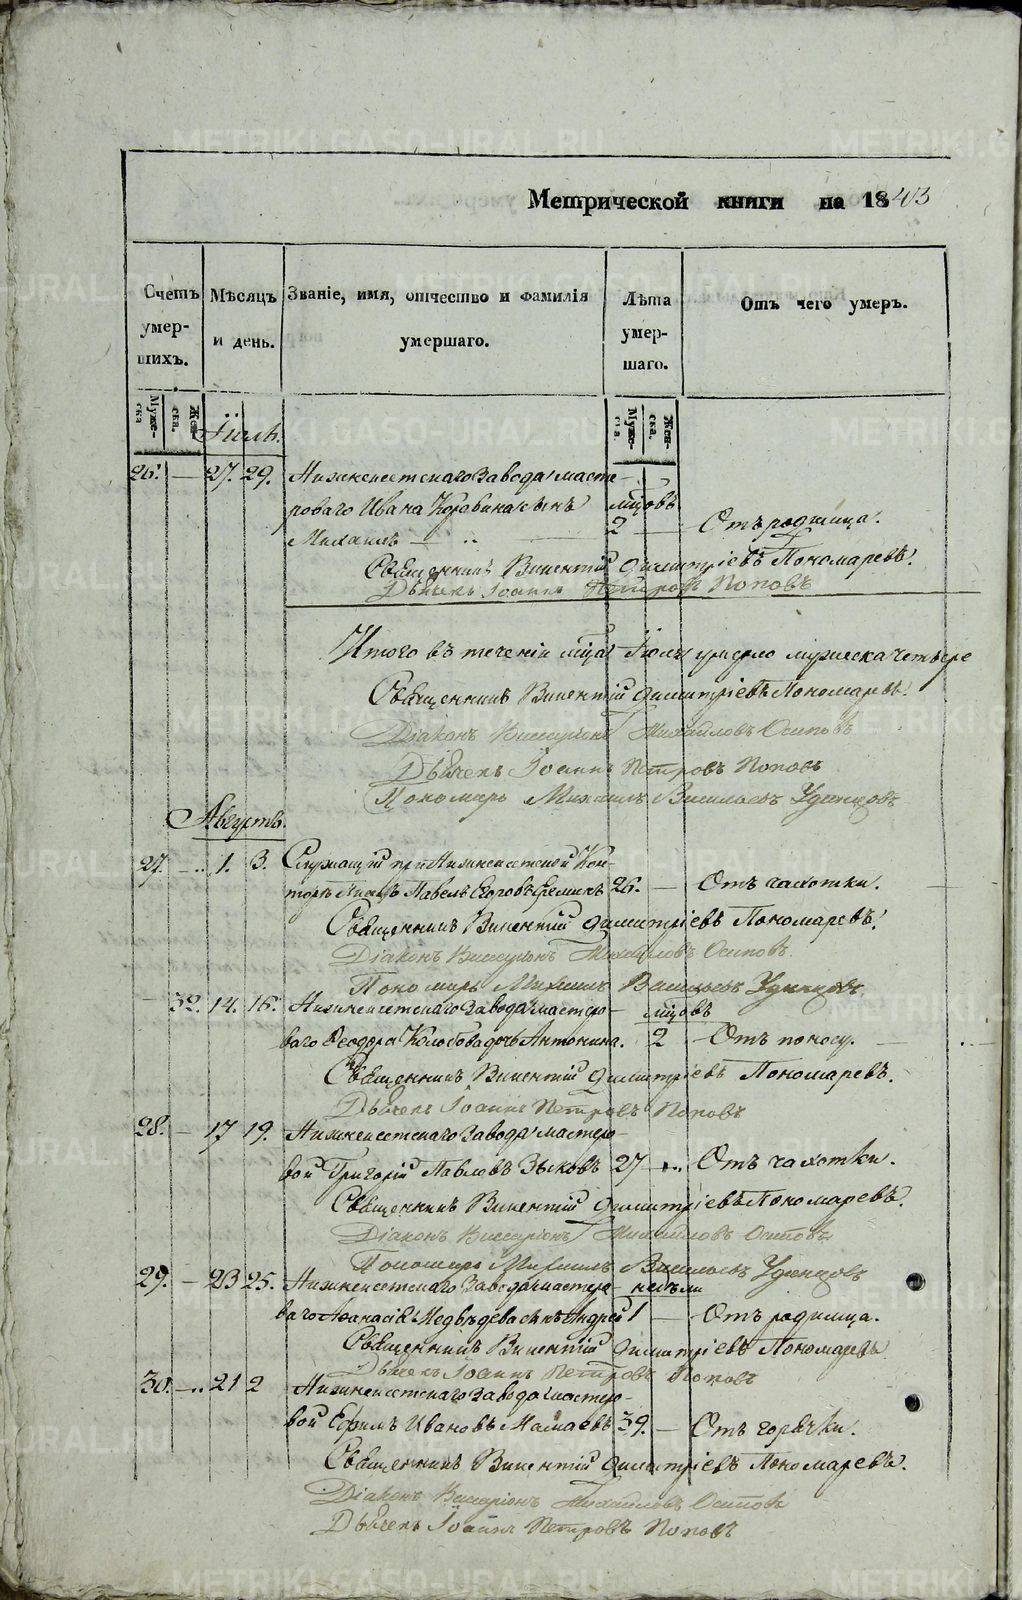 Метрической книги на 1843
Счетъ умер-шихъ.
Мѣсяцъ и день.
Званіе, имя, отчество и фамилія умершаго.
Лѣта умер-шаго.
Отъ чего умеръ.
Муже-ска
Жен-ска.
Муже-ска
Жен-ска.
Іюль.
26. — 27. 29. Нижнеисетскаго Завода масте-
роваго Ивана Коровина сынъ мцовъ
Михаилъ — 2 — Отъ родимца.
Священникъ Викентій Димитріевъ Пономаревъ.
Дьячекъ Іоаннъ Петровъ Поповъ
Итого въ теченіи мца Іюля умерло мужеска четыре
Священникъ Викентій Димитріевъ Пономаревъ.
Діаконъ Виссаріонъ Михайловъ Осиповъ
Дьячекъ Іоаннъ Петровъ Поповъ
Пономарь Михаилъ Васильевъ Удинцовъ
Августъ.
27. — 1. 3. Служащій при Нижнеисетской Кон-
торѣ Писецъ Павелъ Егоровъ Ереминъ 26. — Отъ чахотки.
Священникъ Викентій Димитріевъ Пономаревъ.
Діаконъ Виссаріонъ Михайловъ Осиповъ.
Пономарь Михаилъ Васильевъ Удинцовъ
— 32. 14. 16. Нижнеисетскаго Завода мастеро- мцовъ
ваго Ѳеодора Колобова дочь Антонина. 2 Отъ поносу.
Священникъ Викентій Димитріевъ Пономаревъ.
Дьячекъ Іоаннъ Петровъ Поповъ
28. — 17 19. Нижнеисетскаго Завода мастеро-
вой Григорій Павловъ Зыковъ 27 — Отъ чахотки.
Священникъ Викентій Димитріевъ Пономаревъ.
Діаконъ Виссаріонъ Михайловъ Осиповъ
Пономарь Михаилъ Васильевъ Удинцовъ
29. — 23 25. Нижнеисетскаго Завода мастеро- недѣли
ваго Аѳанасія Медвѣдева сынъ Андрей 1 — Отъ родимца.
Священникъ Викентій Димитріевъ Пономаревъ
Дьячекъ Іоаннъ Петровъ Поповъ
30. — 21 2 Нижнеисетскаго Завода мастеро-
вой Ефимъ Ивановъ Мамаевъ 39. — Отъ горячки.
Священникъ Викентій Димитріевъ Пономаревъ.
Діаконъ Виссаріонъ Михайловъ Осиповъ
Дьячекъ Іоаннъ Петровъ Поповъ
METRIKI.GASO-URAL.RU